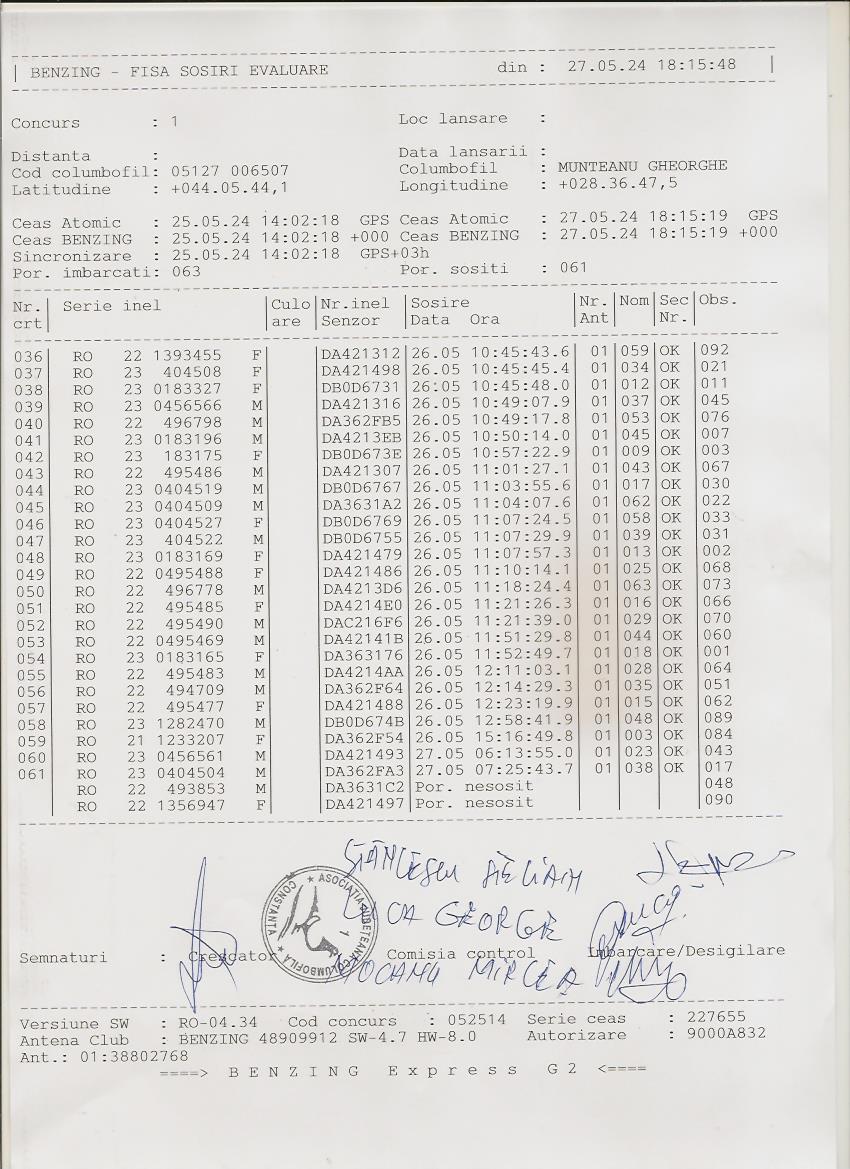 | BENZING - FISA SOSIRI EVALUARE din : 27.05.24 18:15:48 |
Concurs : 1 Loc lansare :
Distanta : Data lansarii :
Cod columbofil: 05127 006507 Columbofil : MUNTEANU GHEORGHE
Latitudine : +044.05.44,1 Longitudine : +028.36.47,5
Ceas Atomic : 25.05.24 14:02:18 GPS Ceas Atomic : 27.05.24 18:15:19 GPS
Ceas BENZING : 25.05.24 14:02:18 +000 Ceas BENZING : 27.05.24 18:15:19 +000
Sincronizare : 25.05.24 14:02:18 GPS+03h
Por. imbarcati: 063 Por. sositi : 061
Nr. | Serie inel |Culo|Nr.inel |Sosire |Nr.|Nom|Sec|Obs.
crt| |are |Senzor |Data Ora |Ant| |Nr.|
036 RO 22 1393455 F DA421312 26.05 10:45:43.6 01 059 OK 092
037 RO 23 404508 F DA421498 26.05 10:45:45.4 01 034 OK 021
038 RO 23 0183327 F DB0D6731 26:05 10:45:48.0 01 012 OK 011
039 RO 23 0456566 M DA421316 26.05 10:49:07.9 01 037 OK 045
040 RO 22 496798 M DA362FB5 26.05 10:49:17.8 01 053 OK 076
041 RO 23 0183196 M DA4213EB 26.05 10:50:14.0 01 045 OK 007
042 RO 23 183175 F DB0D673E 26.05 10:57:22.9 01 009 OK 003
043 RO 22 495486 M DA421307 26.05 11:01:27.1 01 043 OK 067
044 RO 23 0404519 M DB0D6767 26.05 11:03:55.6 01 017 OK 030
045 RO 23 0404509 M DA3631A2 26.05 11:04:07.6 01 062 OK 022
046 RO 23 0404527 F DB0D6769 26.05 11:07:24.5 01 058 OK 033
047 RO 23 404522 M DB0D6755 26.05 11:07:29.9 01 039 OK 031
048 RO 23 0183169 F DA421479 26.05 11:07:57.3 01 013 OK 002
049 RO 22 0495488 F DA421486 26.05 11:10:14.1 01 025 OK 068
050 RO 22 496778 M DA4213D6 26.05 11:18:24.4 01 063 OK 073
051 RO 22 495485 F DA4214E0 26.05 11:21:26.3 01 016 OK 066
052 RO 22 495490 M DAC216F6 26.05 11:21:39.0 01 029 OK 070
053 RO 22 0495469 M DA42141B 26.05 11:51:29.8 01 044 OK 060
054 RO 23 0183165 F DA363176 26.05 11:52:49.7 01 018 OK 001
055 RO 22 495483 M DA4214AA 26.05 12:11:03.1 01 028 OK 064
056 RO 22 494709 M DA362F64 26.05 12:14:29.3 01 035 OK 051
057 RO 22 495477 F DA421488 26.05 12:23:19.9 01 015 OK 062
058 RO 23 1282470 M DB0D674B 26.05 12:58:41.9 01 048 OK 089
059 RO 21 1233207 F DA362F54 26.05 15:16:49.8 01 003 OK 084
060 RO 23 0456561 M DA421493 27.05 06:13:55.0 01 023 OK 043
061 RO 23 0404504 M DA362FA3 27.05 07:25:43.7 01 038 OK 017
RO 22 493853 M DA3631C2 Por. nesosit 048
RO 22 1356947 F DA421497 Por. nesosit 090
STĂNCESCU AELIAN
LUCA GEORGE
MIRCEA
ASOCIATIA JUDETEANA COLUMBOFILA ★ CONSTANTA ★
1
Semnaturi : Crescator Comisia control Imbarcare/Desigilare
Versiune SW : RO-04.34 Cod concurs : 052514 Serie ceas : 227655
Antena Club : BENZING 48909912 SW-4.7 HW-8.0 Autorizare : 9000A832
Ant.: 01:38802768
====> B E N Z I N G E x p r e s s G 2 <====